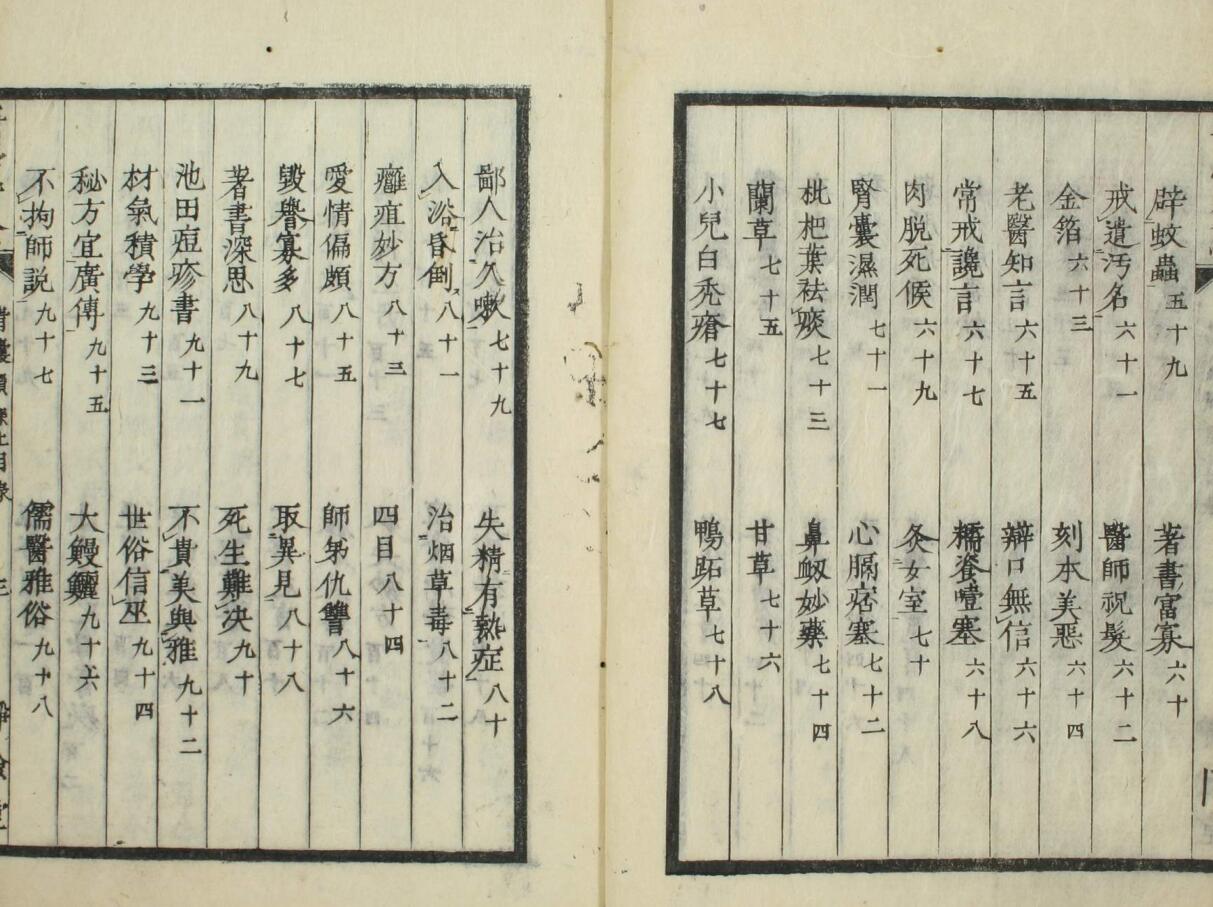 辟蚊蟲 五十九 著書富寡 六十
戒遺汚名 六十一 醫師祝髮 六十二
金箔 六十三 刻本美惡 六十四
老醫知言 六十五 辯口無信 六十六
常戒讒言 六十七 糯瓷噎塞 六十八
肉脱死候 六十九 灸女室 七十
腎囊濕潤 七十一 心膈痞塞 七十二
枇杷葉祛痰 七十三 鼻衂妙藥 七十四
蘭草 七十五 甘草 七十六
小兒白禿瘡 七十七 鴨跖草 七十八
鄙人治久嗽 七十九 失精有熱症 八十
入浴昏倒 八十一 治烟草毒 八十二
癰疽妙方 八十三 四目 八十四
愛情偏頗 八十五 師弟仇讐 八十六
毀譽寡多 八十七 取異見 八十八
著書深思 八十九 死生難決 九十
池田痘疹書 九十一 不貴美與雅 九十二
材氣積學 九十三 世俗信巫 九十四
秘方宜廣傳 九十五 大鰻鱺 九十六
不拘師説 九十七 儒醫雅俗 九十八